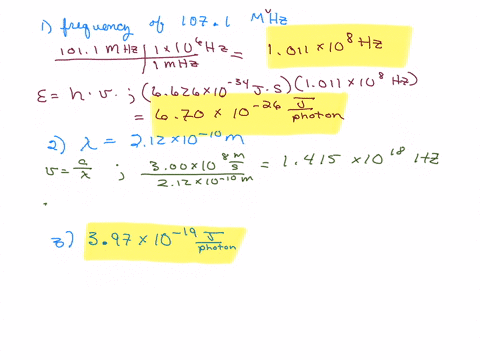 1) frequency of 107.1 MHz
101.1 MHz | 1 × 10⁶ Hz / 1 MHz = 1.011 × 10⁸ Hz
ε = h · ν . ; (6.626 × 10⁻³⁴ J·s)(1.011 × 10⁸ Hz)
= 6.70 × 10⁻²⁶ J/photon
2) λ = 2.12 × 10⁻¹⁰ m
ν = c/λ ; 3.00 × 10⁸ m/s / 2.12 × 10⁻¹⁰ m = 1.415 × 10¹⁸ Hz
3) 3.97 × 10⁻¹⁹ J/photon